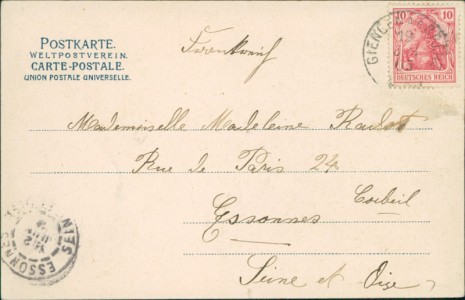 POSTKARTE.
WELTPOSTVEREIN.
CARTE-POSTALE.
UNION POSTALE UNIVERSELLE.
Frankreich
10 10
DEUTSCHES REICH
Mademoiselle Madeleine
Rue de Paris 24
Corbeil
Essonnes
Seine et Oise
ESSONNES